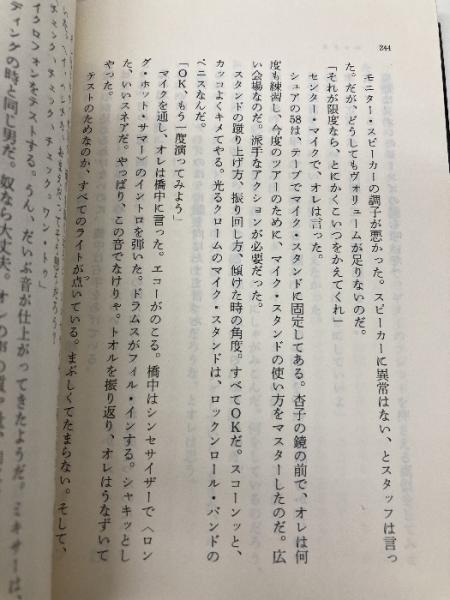 244
モニター・スピーカーの調子が悪かった。スピーカーに異常はない、とスタッフは言っ
た。だが、どうしてもヴォリュームが足りないのだ。
「それが限度なら、とにかくこいつをかえてくれ」
センター・マイクで、オレは言った。
シュアの58は、テープでマイク・スタンドに固定してある。杏子の鏡の前で、オレは何
度も練習し、今度のツアーのために、マイク・スタンドの使い方をマスターしたのだ。広
い会場なのだ。派手なアクションが必要だった。
スタンドの蹴り上げ方、振り回し方、傾けた時の角度。すべてOKだ。スコーンッと、
カッコよくキメてやる。光るクロームのマイク・スタンドは、ロックンロール・バンドの
ペニスなんだ。
「OK、もう一度演ってみよう」
マイクを通し、オレは橋中に言った。エコーがのこる。橋中はシンセサイザーで〈ロン
グ・ホット・サマー〉のイントロを弾いた。ドラムスがフィル・インする。シャキッとし
た、いいスネアだ。やっぱり、この音でなけりゃ。トオルを振り返り、オレはうなずいて
やった。
テストのためなのか、すべてのライトが点いている。まぶしくてたまらない。そして、
チェック、チェック、ワン、トゥ
イクロフォンをテストする。うん、だいぶ音が仕上がってきたようだ。ミキサーは、
ディングの時と同じ男だ。奴なら大丈夫。